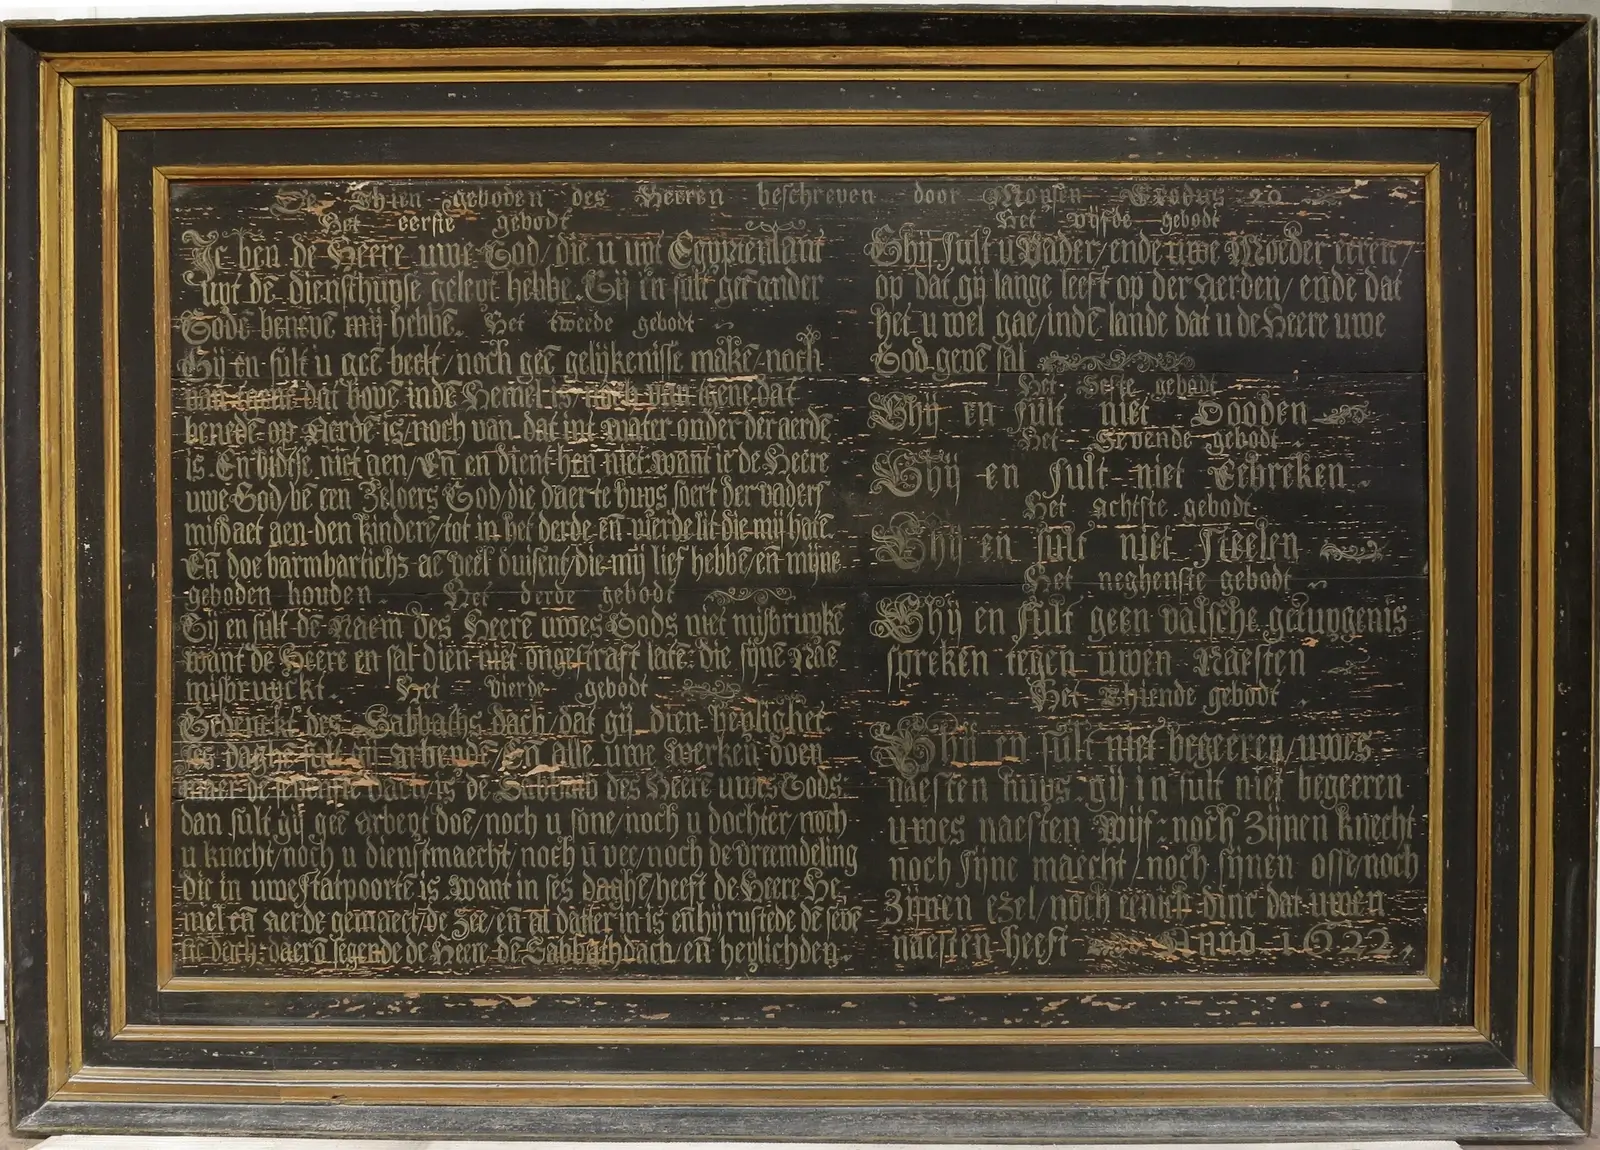 De Thien geboden des Herren beschreven door Moysen Exodus 20
Het eerste gebodt
Ic ben de Heere uwe God/die u unt Egyptenlant
uyt dē diensthuyse geleyt hebbe. Gij en sult geē ander
Godē benevē mij hebbē. Het tweede gebodt
Gij en sult u geē beelt/noch geē gelijkenisse makē/noch
dat bovē indē Hemel is/noch van gene dat
benedē op Aerdē is/noch van dat int water onder der aerdē
is. En bidtse niet aen/En en dient hen niet. want ic de Heere
uwe God/bē een Zeloers God/die daer te huys soect der vaders
misdaet aen den kinderē/tot in het derde eñ vierde lit die mij hatē.
Eñ doe barmhartich3 aē veel duisent/die mij lief hebbē/eñ mijne
geboden houden. Het derde gebodt
Gij en sult dē Naem des Heerē uwes Gods niet misbruykē
want de Heere en sal dien niet ongestraft latē: die sijnē Naē
misbruyckt. Het vierde gebodt
Gedenckt des Sabbaths dach/dat gij dien heylighet
ses daghē sult gij arbeydē/Eñ alle uwe Werken doen
maer de sevenste dach/is de Sabbath des Heerē uwes Gods.
dan sult gij geē arbeyt doē/noch u sone/noch u dochter/noch
u knecht/noch u dienstmaecht/noch u vee/noch de vreemdeling
die in uwe Statpoortē is. Want in ses daghē/heeft de Heere He-
mel eñ Aerde gemaect/de Zee/eñ al datter in is eñ hij rustede dē seve
stē dach: daerō segende de Heere dē Sabbathdach/eñ heylichdeñ.
Het vijfde gebodt
Ghij sult u Vader/ende uwe Moeder eeren/
op dat gij lange leeft op der Aerden/ende dat
het u wel gae/indē lande dat u de Heere uwe
God gevē sal
Het Seste gebodt
Ghij en sult niet Dooden
Het Sevende gebodt
Ghij en sult niet Eebreken
Het achtste gebodt
Ghij en sult niet Steelen
Het neghenste gebodt
Ghij en sult geen valsche getuygenis
spreken tegen uwen Naesten
Het Thiende gebodt
Ghij en sult niet begeeren/uwes
naesten huys: gij in sult niet begeeren
uwes naesten Wijf: noch Zijnen knecht
noch Sijne maecht/noch sijnen osse/noch
Zijnen ezel/noch eenich dinc dat uwen
naesten heeft Anno 1622